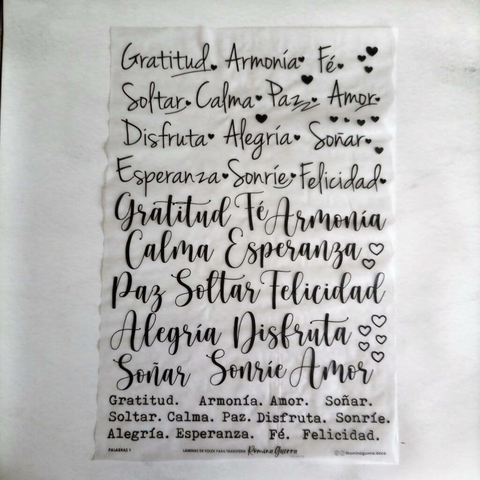 Gratitud. Armonía Fé
Soltar Calma Paz Amor
Disfruta Alegría Soñar
Esperanza Sonríe Felicidad
Gratitud Fé Armonía
Calma Esperanza
Paz Soltar Felicidad
Alegría Disfruta
Soñar Sonríe Amor
Gratitud. Armonía. Amor. Soñar.
Soltar. Calma. Paz. Disfruta. Sonríe.
Alegría. Esperanza. Fé. Felicidad.
PALABRAS 1 Romina Guerra